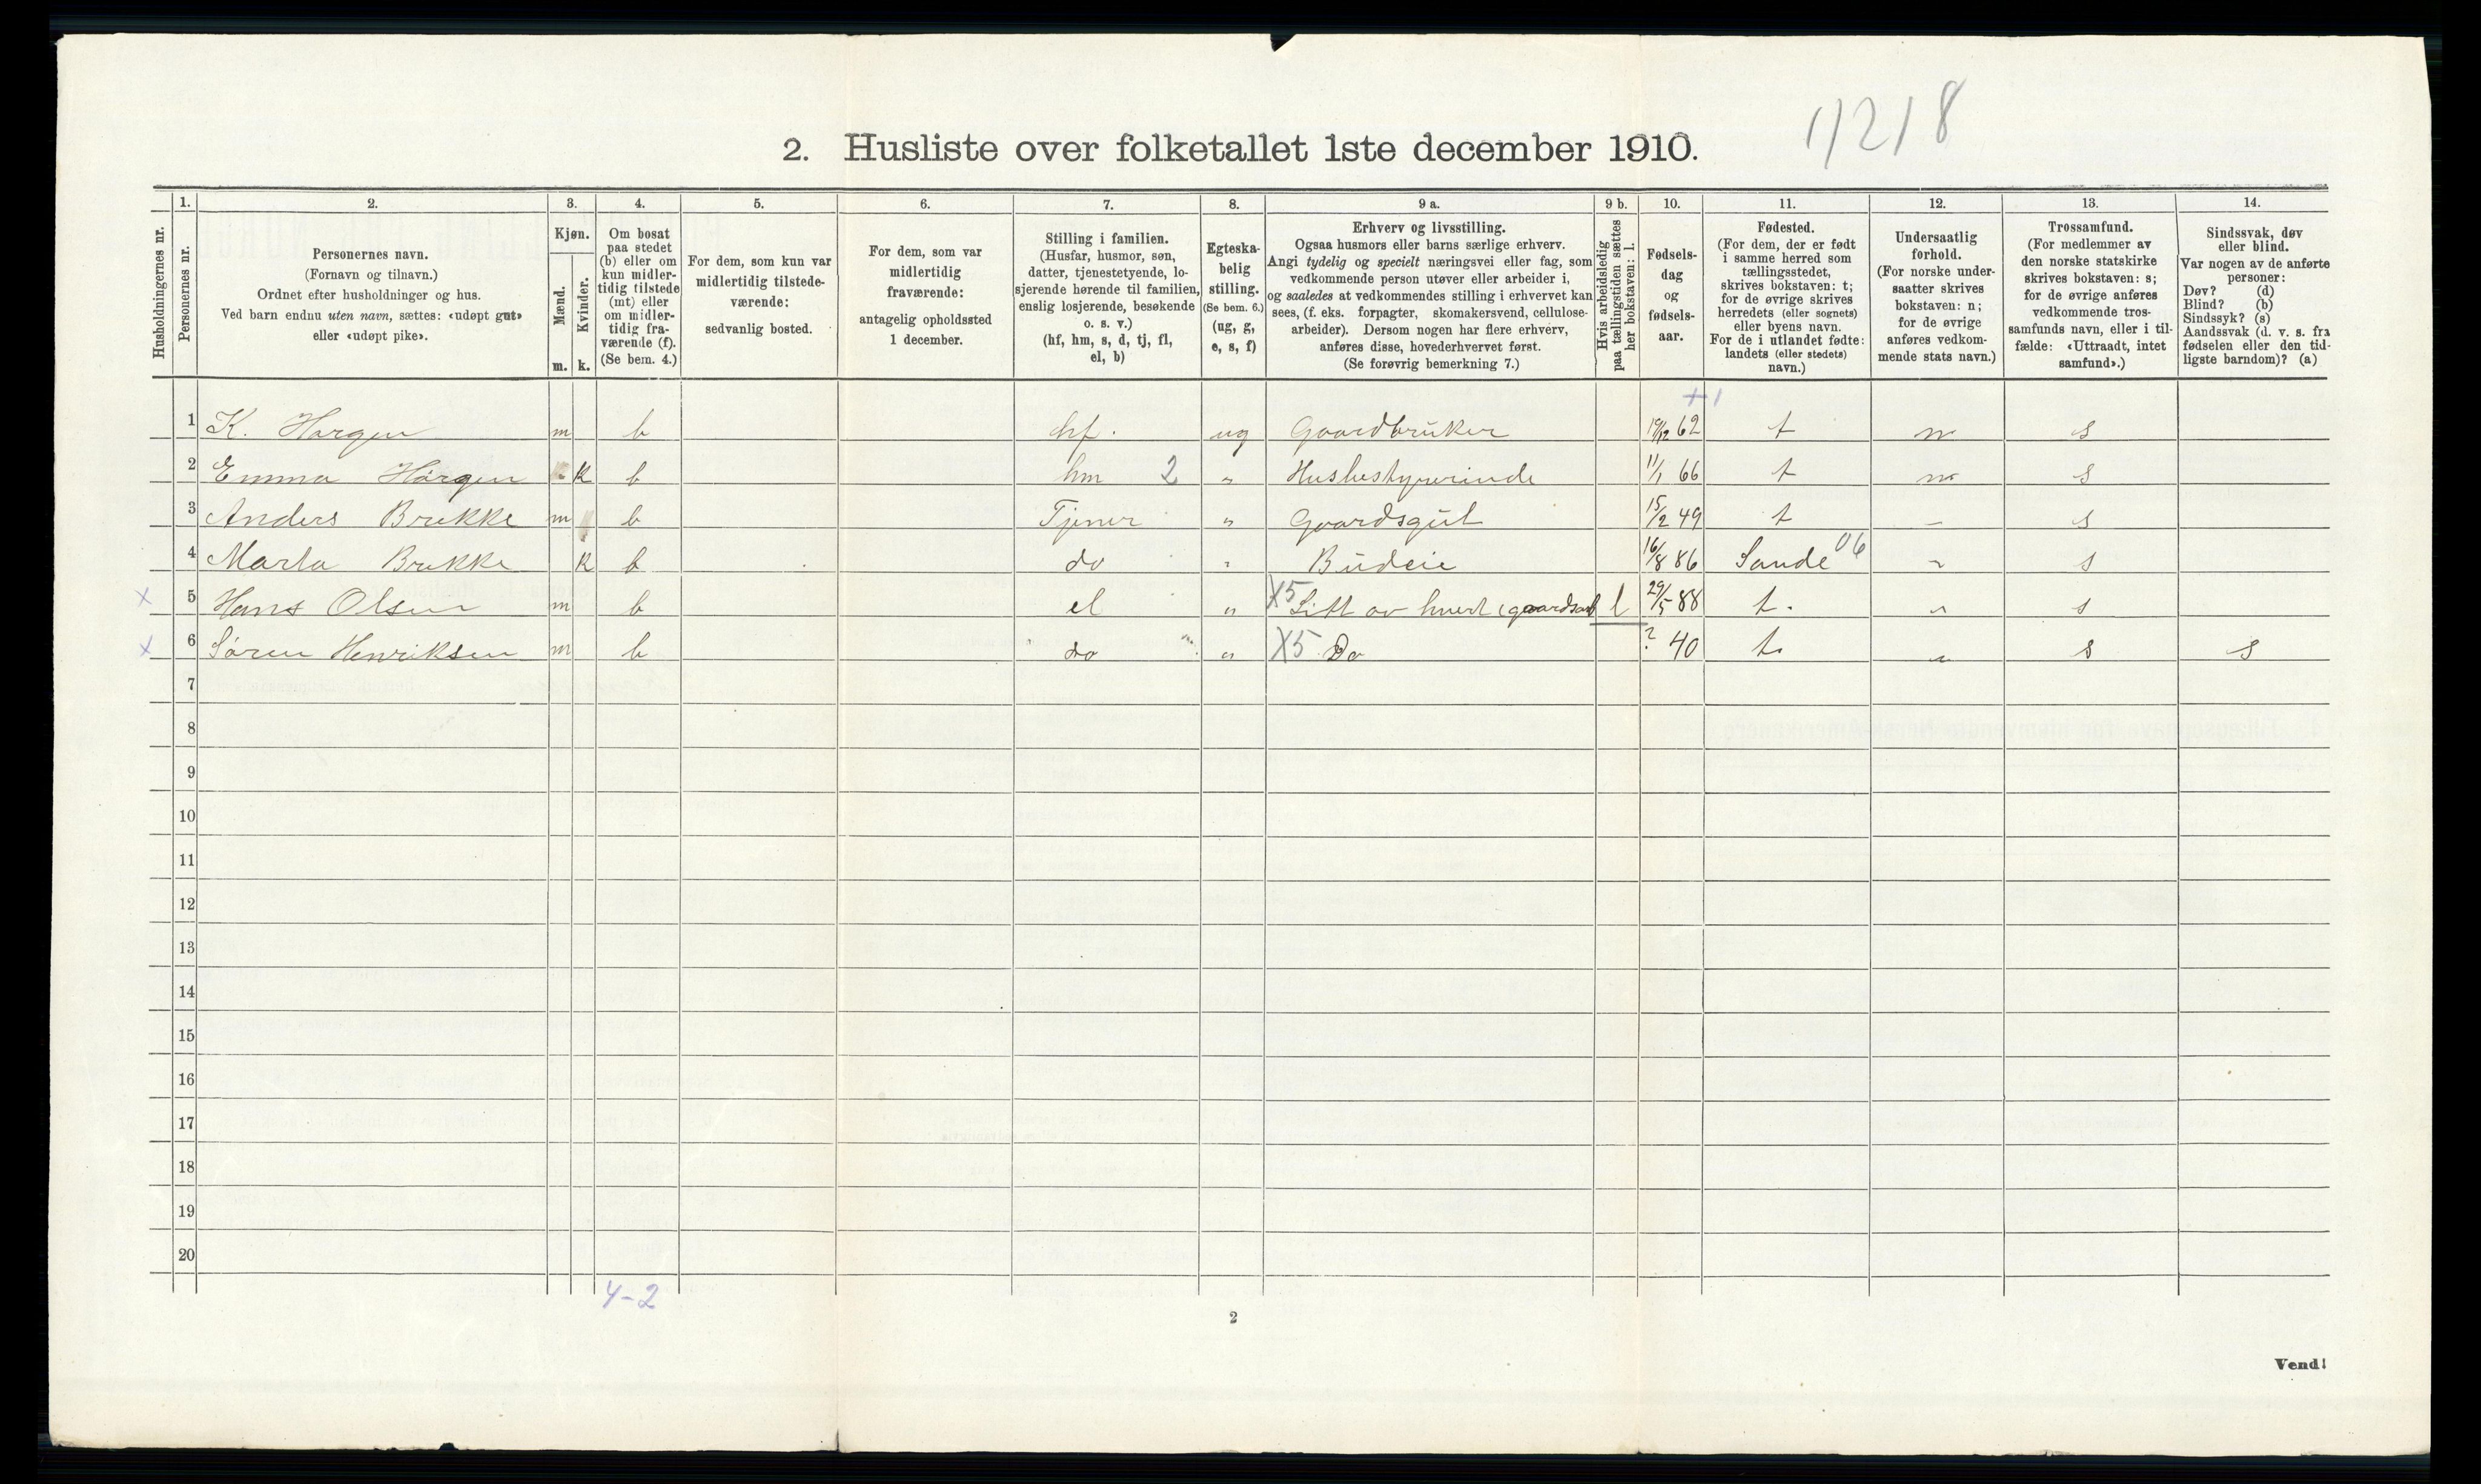 1/2/8
2. Husliste over folketallet 1ste december 1910.
Husholdningernes nr.
1. Personernes nr.
2. Personernes navn.
(Fornavn og tilnavn.)
Ordnet efter husholdninger og hus.
Ved barn endnu uten navn, sættes: «udøpt gut»
eller «udøpt pike».
3. Kjøn.
Mænd. m.
Kvinder. k.
4. Om bosat
paa stedet
(b) eller om
kun midler-
tidig tilstede
(mt) eller
om midler-
tidig fra-
værende (f).
(Se bem. 4.)
5. For dem, som kun var
midlertidig tilstede-
værende:
sedvanlig bosted.
6. For dem, som var
midlertidig
fraværende:
antagelig opholdssted
1 december.
7. Stilling i familien.
(Husfar, husmor, søn,
datter, tjenestetyende, lo-
sjerende hørende til familien,
enslig losjerende, besøkende
o. s. v.)
(hf, hm, s, d, tj, fl,
el, b)
8. Egteska-
belig
stilling.
(Se bem. 6.)
(ug, g,
e, s, f)
9 a. Erhverv og livsstilling.
Ogsaa husmors eller barns særlige erhverv.
Angi tydelig og specielt næringsvei eller fag, som
vedkommende person utøver eller arbeider i,
og saaledes at vedkommendes stilling i erhvervet kan
sees, (f. eks. forpagter, skomakersvend, cellulose-
arbeider). Dersom nogen har flere erhverv,
anføres disse, hovederhvervet først.
(Se forøvrig bemerkning 7.)
9 b. Hvis arbeidsledig
paa tællingstiden sættes
her bokstaven: l.
10. Fødsels-
dag
og
fødsels-
aar.
11. Fødested.
(For dem, der er født
i samme herred som
tællingsstedet,
skrives bokstaven: t;
for de øvrige skrives
herredets (eller sognets)
eller byens navn.
For de i utlandet fødte:
landets (eller stedets)
navn.)
12. Undersaatlig
forhold.
(For norske under-
saatter skrives
bokstaven: n;
for de øvrige
anføres vedkom-
mende stats navn.)
13. Trossamfund.
(For medlemmer av
den norske statskirke
skrives bokstaven: s;
for de øvrige anføres
vedkommende tros-
samfunds navn, eller i til-
fælde: «Uttraadt, intet
samfund».)
14. Sindssvak, døv
eller blind.
Var nogen av de anførte
personer:
Døv? (d)
Blind? (b)
Sindssyk? (s)
Aandssvak (d. v. s. fra
fødselen eller den tid-
ligste barndom)? (a)
+1
1 K. Horgen m b hf. ug Gaardbruker 19/12 62 t n s
2 Emma Horgen k b hm 2 " Husbestyrerinde 11/1 66 t n s
3 Anders Brekke m b Tjener " Gaardsgut 15/2 49 t " s
4 Marta Brekke k b do " Budeie 16/8 86 Sande 06 " s
x 5 Hans Olsen m b el " X5 Litt av hvert (gaardsarb l 29/5 88 t. " s
x 6 Søren Henriksen m b do " X5 Do ? 40 t. " s s
7
8
9
10
11
12
13
14
15
16
17
18
19
20
4-2
2
Vend!